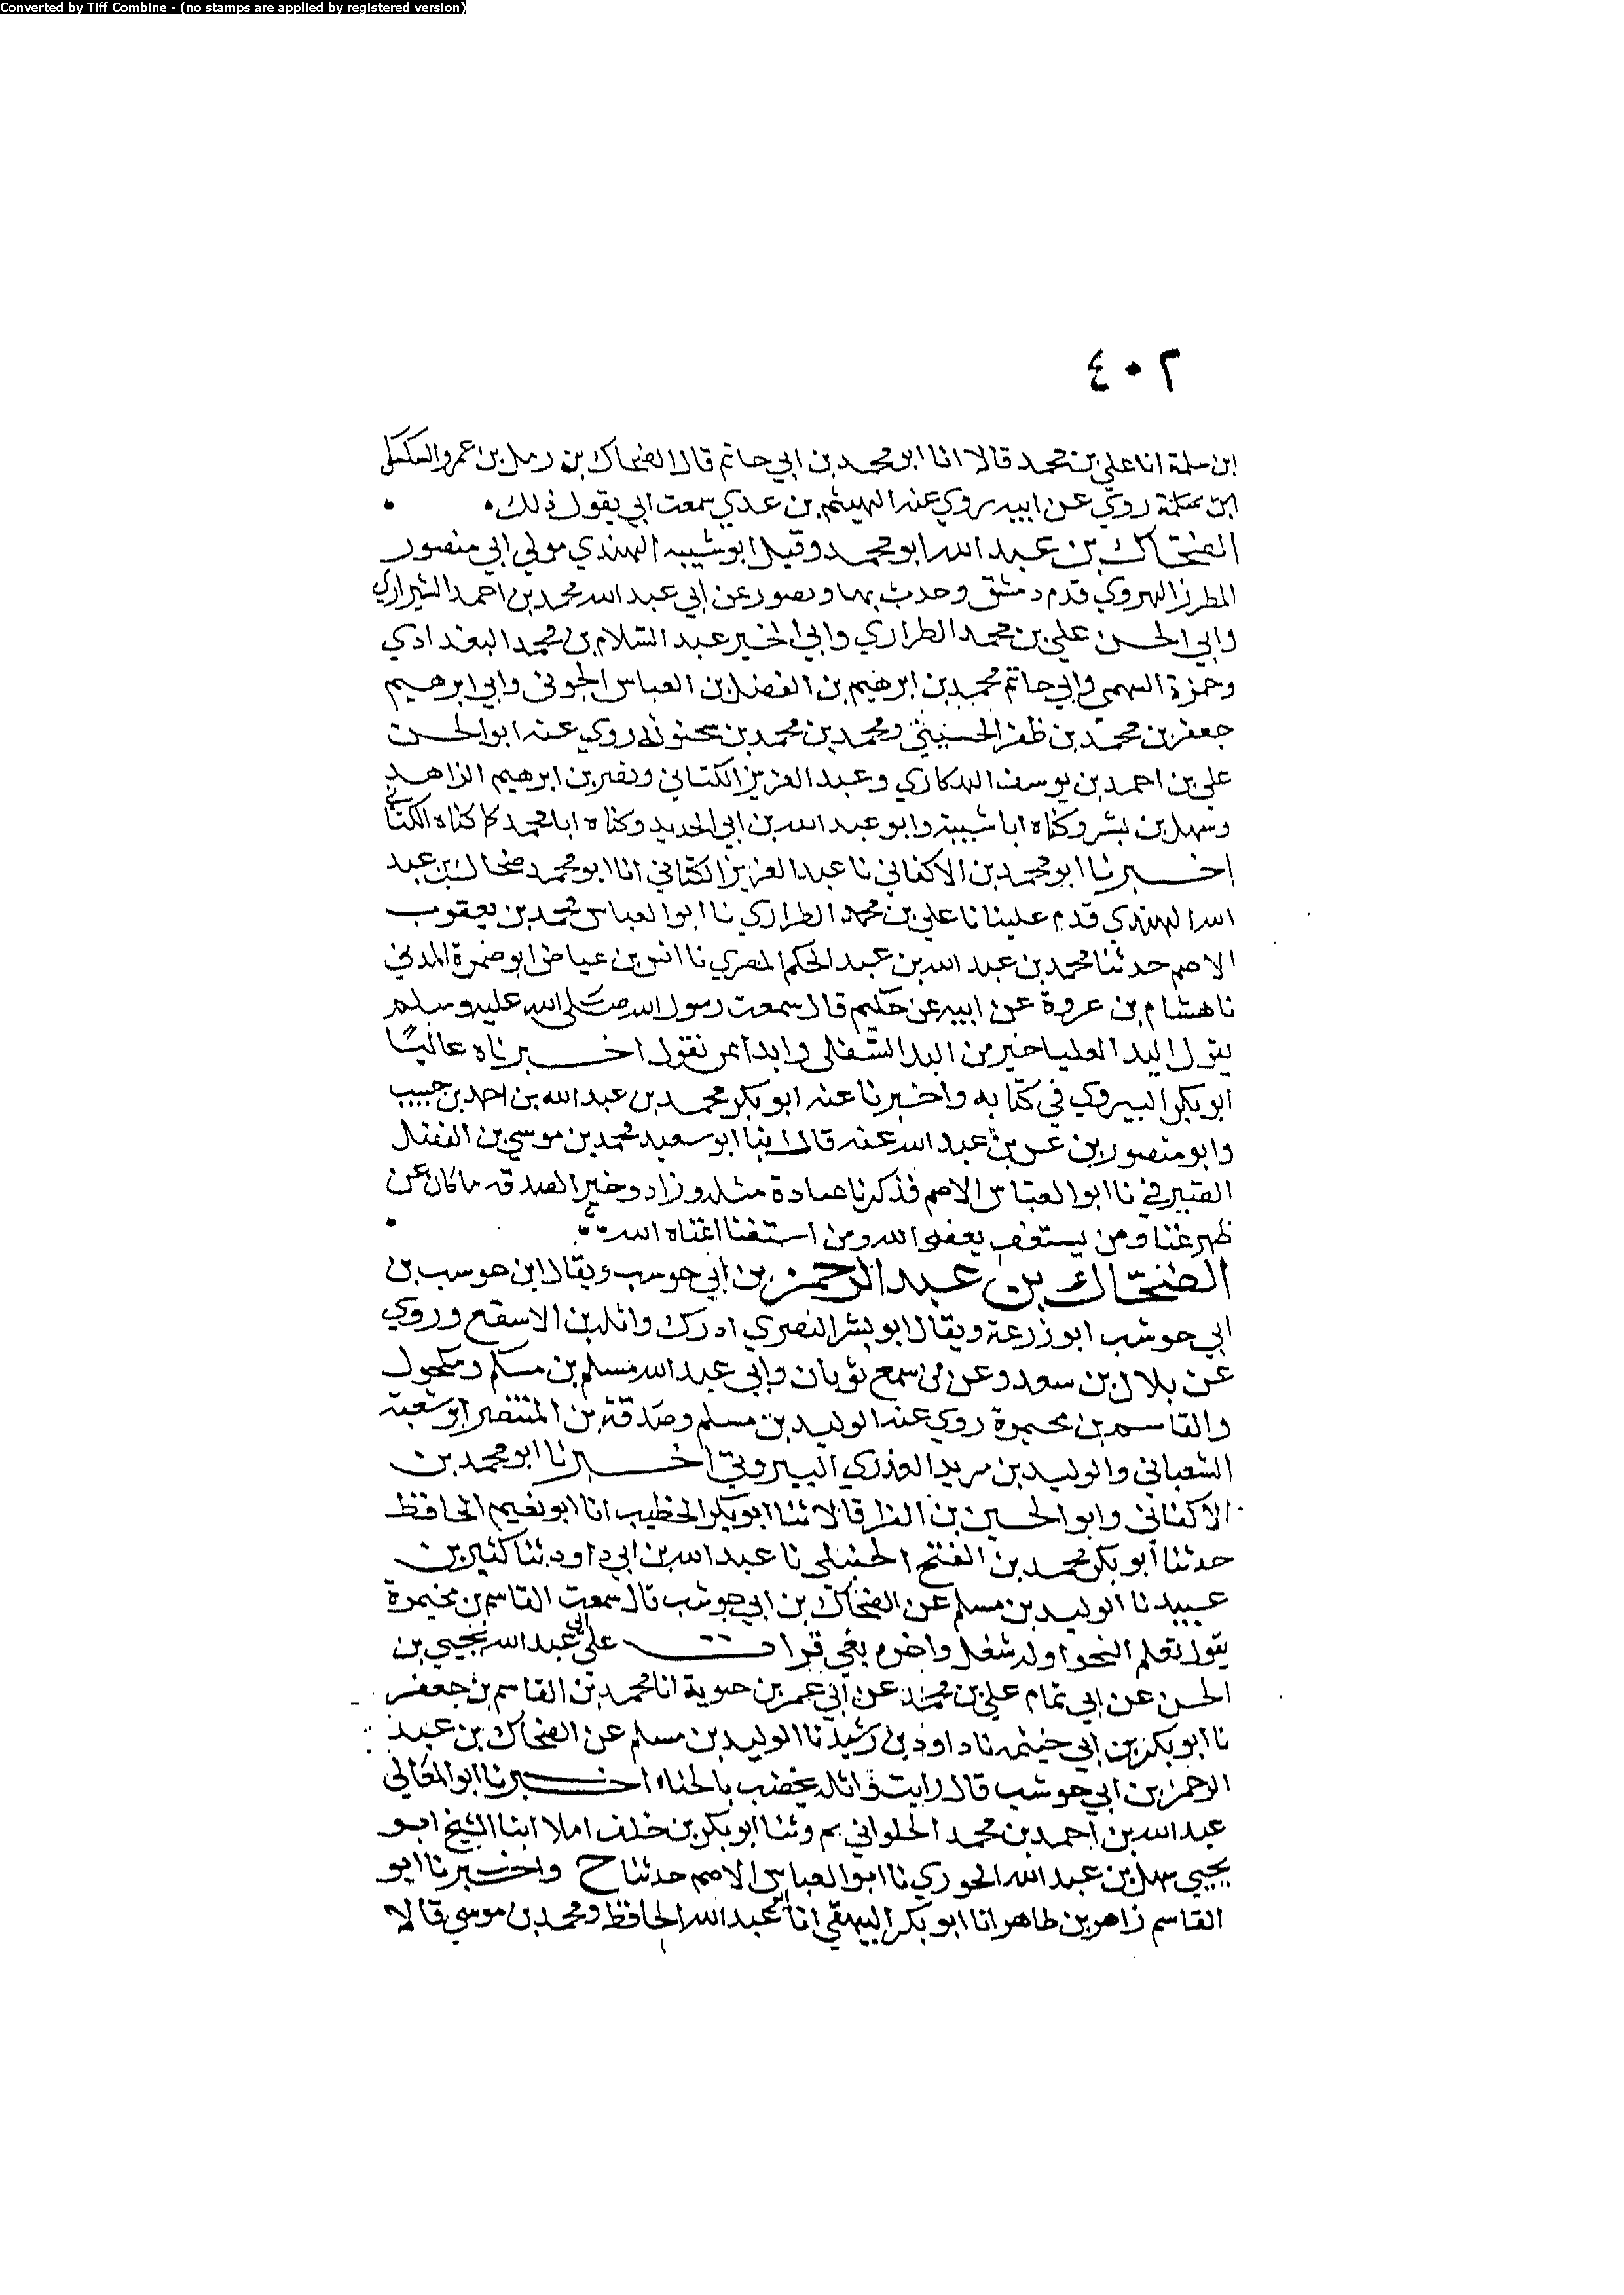 Converted by Tiff Combine - (no stamps are applied by registered version)
٤٠٢
ابن سلمة انا علي بن محمد قالا انا ابو محمد بن ابي حاتم قال الضحاك بن رمل بن عمرو السكسكي
ابن سلمة روي عن ابيه روي عنه الهيثم بن عدي سمعت ابي يقول ذلك
الضحاك بن عبد الله ابو محمد وقيل ابو شيبه الهندي مولي ابي منصور
المطرز الهروي قدم دمشق وحدث بها وبصور عن ابي عبد الله محمد بن احمد الشيرازي
وابي الحسن علي بن محمد الطرازي وابي الخير عبد السلام بن محمد البغدادي
وحمزة السهمي وابي حاتم محمد بن ابرهيم بن الفضل بن العباس وابي ابرهيم
جعفر بن محمد بن ظفر ومحمد بن محمد بن روي عنه ابو الحسن
علي بن احمد بن يوسف الهكاري وعبد العزيز الكتاني ونصر بن ابرهيم الزاهد
وسهل بن بشر وكناه ابا شيبة وابو عبد الله بن ابي الحديد وكناه ابا محمد كما كناه الكتاني
اخبرنا ابو محمد بن الاكفاني نا عبد العزيز الكتاني انا ابو محمد ضحاك بن عبد
الله الهندي قدم علينا نا علي بن محمد الطرازي نا ابو العباس محمد بن يعقوب
الاصم حدثنا محمد بن عبد الله بن عبد الحكم المصري نا انس بن عياض ابو ضمرة المدني
نا هشام بن عروة عن ابيه عن حكيم قال سمعت رسول الله صلى الله عليه وسلم
يقول اليد العليا خير من اليد السفلى وابدا بمن تعول اخبرناه عاليًا
ابو بكر البيروي في كتابه واخبرنا عنه ابو بكر محمد بن عبد الله بن احمد بن حبيب
وابو منصور بن بن عبد الله عنه قالا انبا ابو سعيد محمد بن موسي بن الفضل
الصيرفي نا ابو العباس الاصم فذكر مثله وزاد وخير الصدقه ما كان عن
ظهر غنا ومن يستعف يعفه الله ومن استغنا اغناه الله
الضحاك بن عبد الرحمن بن ابي حوسب ويقال ابن حوسب بن
ابي حوشب ابو زرعة ويقال ابو بشر النصري ادرك واثله بن الاسقع وروي
عن بلال بن سعد وعن من سمع ثوبان وابي عبيد الله مسلم بن مسلم ومكحول
والقاسم بن مخيمرة روي عنه الوليد بن مسلم وصدقة بن المنتصر ابو شعبة
الشعباني والوليد بن مزيد العذري البيروتي اخبرنا ابو محمد بن
الاكفاني وابو الحسين بن الفرا قالا ثنا ابو بكر الخطيب انا ابو نعيم الحافظ
حدثنا ابو بكر محمد بن الفتح الحنبلي نا عبد الله بن ابي داود ثنا كثير بن
عبيد نا الوليد بن مسلم عن الضحاك بن ابي حوشب قال سمعت القاسم بن مخيمرة
يقول تعلم النحو اوله شغل واخره بغي قرات على ابي عبد الله يحيي بن
الحسن عن ابي تمام علي بن محمد عن ابي عمر بن حيوية انا محمد بن القاسم بن جعفر
نا ابو بكر بن ابي خيثمه نا داود بن رشيد نا الوليد بن مسلم عن الضحاك بن عبد
الرحمن بن ابي حوشب قال رايت واثله يخضب بالحناء اخبرنا ابو المعالي
عبد الله بن احمد بن محمد الحلواني بمرو ثنا ابو بكر بن خلف املا ابنا الشيخ ابو
يحيي سهل بن عبد الله الحوري نا ابو العباس الاصم حدثنا ح واخبرنا ابو
القاسم زاهر بن طاهر انا ابو بكر البيهقي انا ابو عبد الله الحافظ ومحمد بن موسي قالا